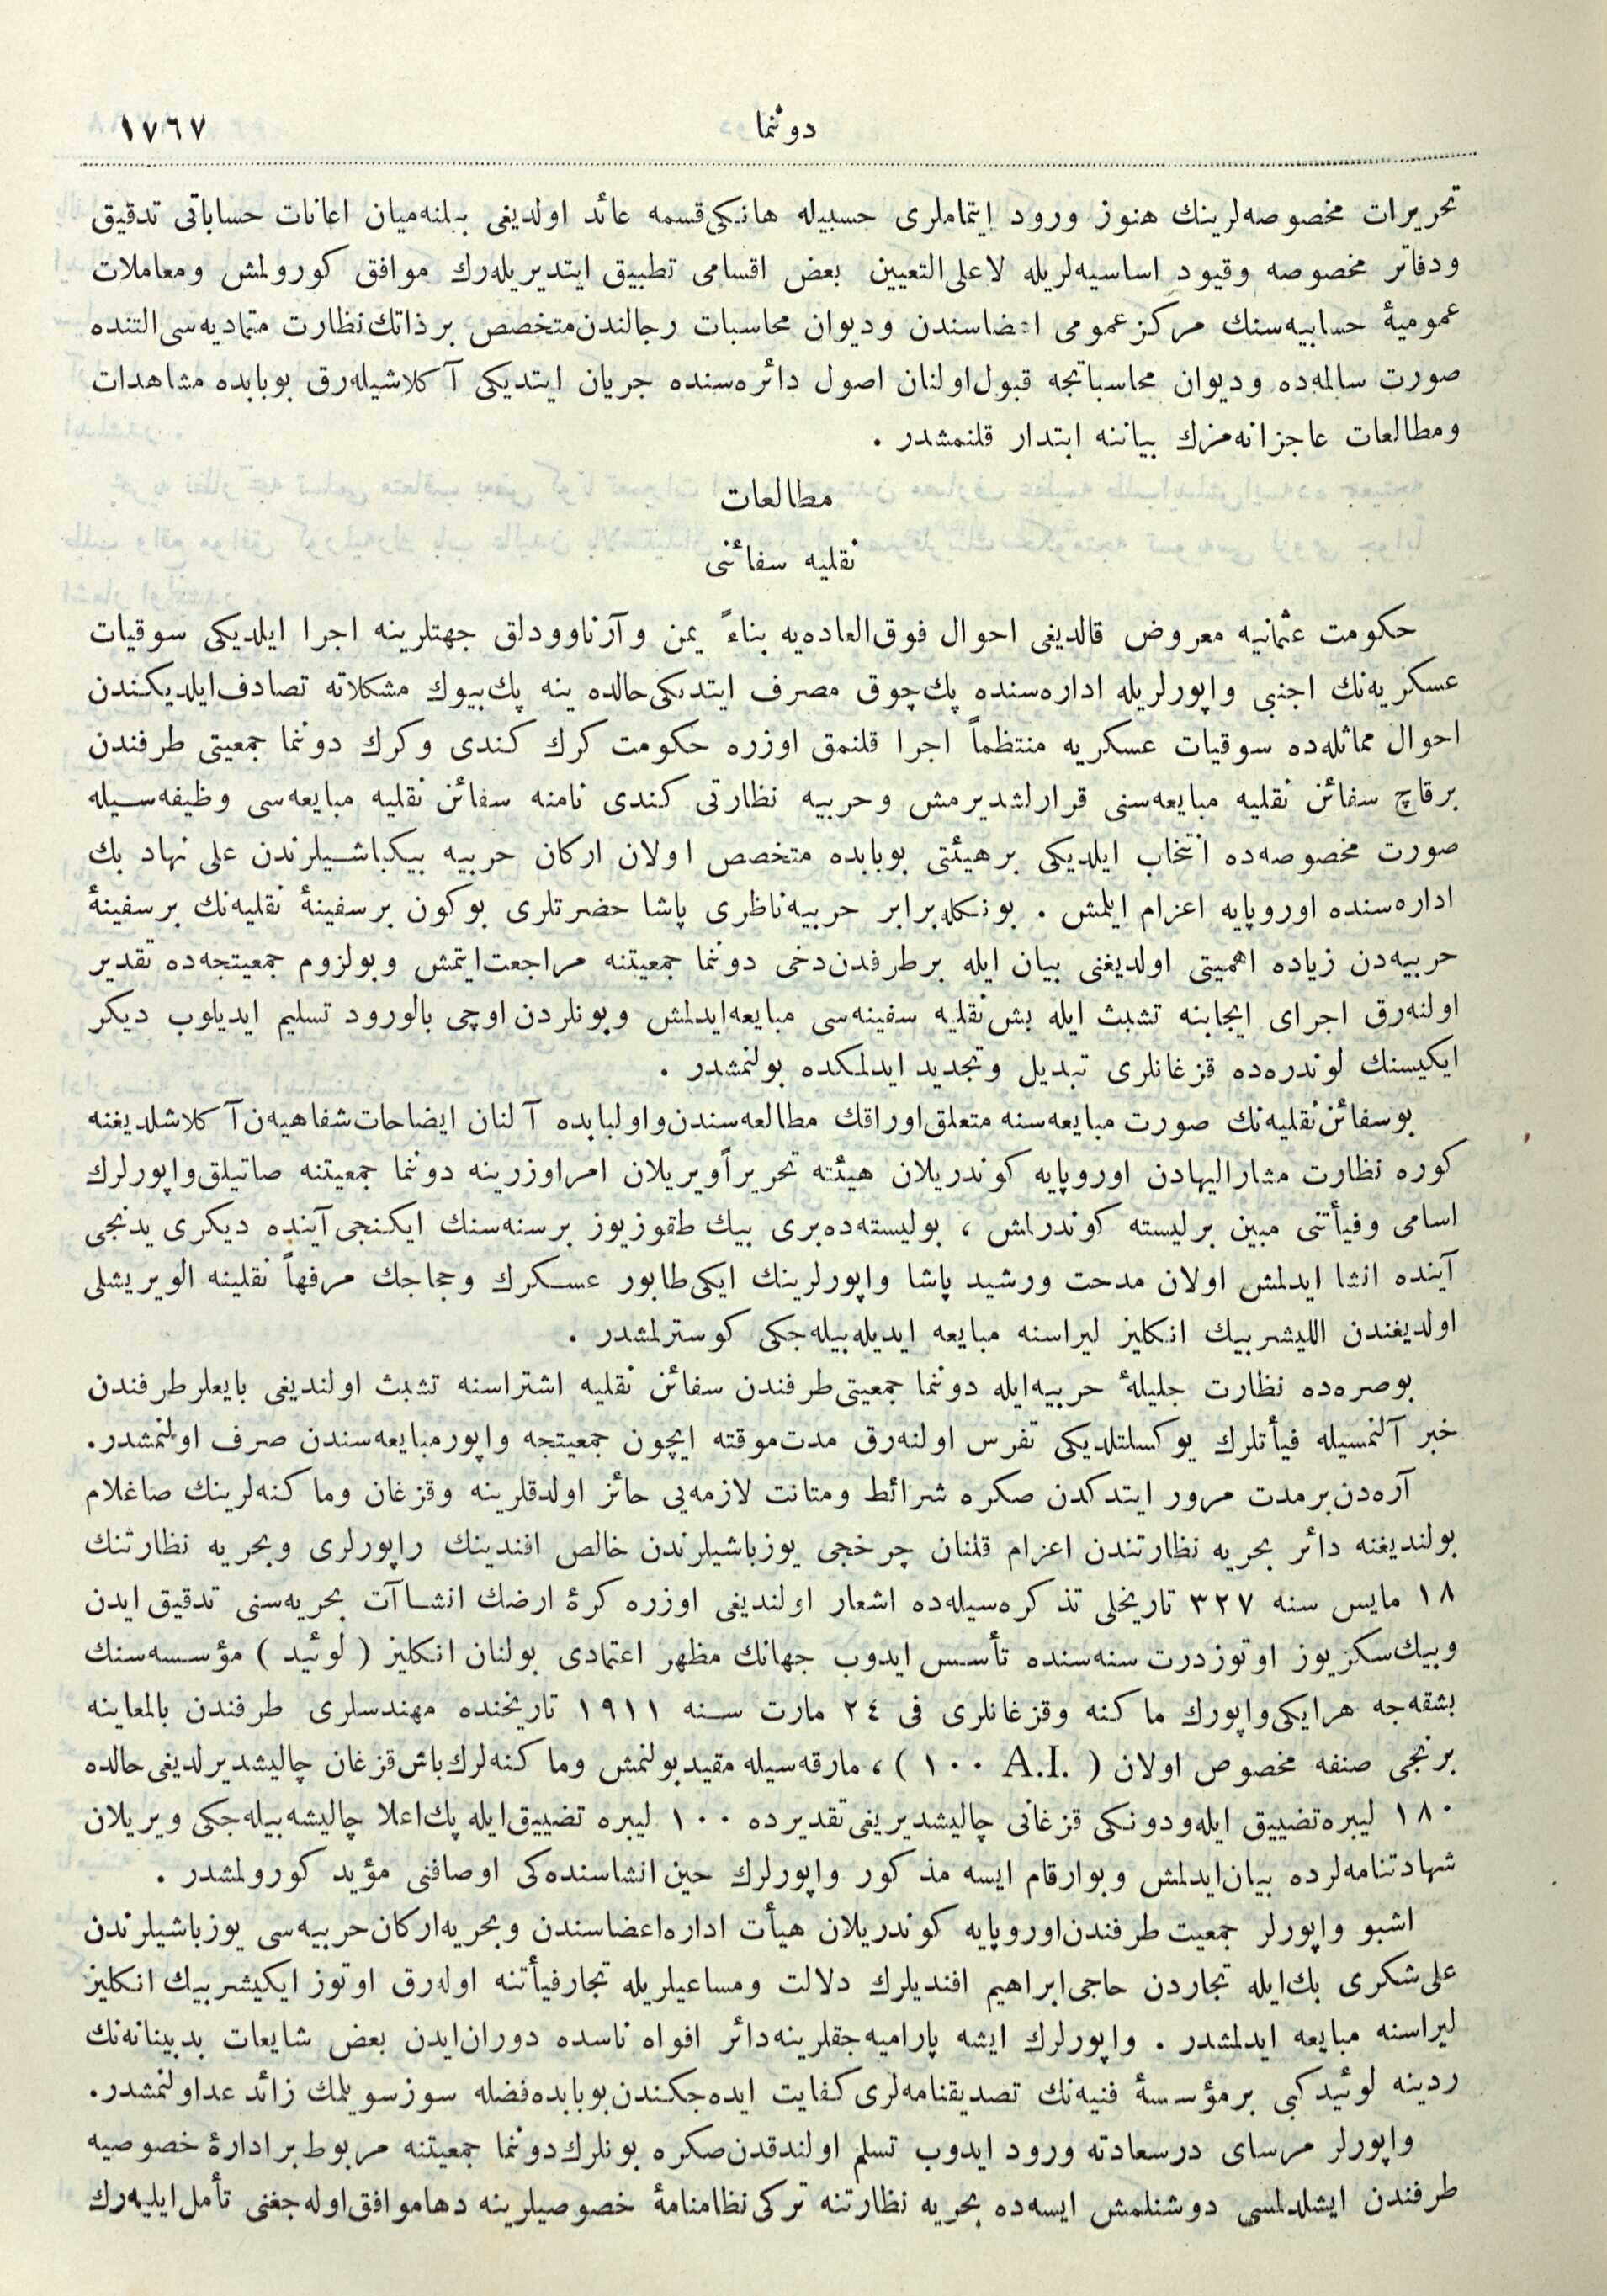 دونما ١٧٦٧
تحریرات مخصوصه‌لرینك هنوز ورود ایتماملری حسبیله هانكی قسمه عائد اولدیغی بیلنه‌میان اعانات حساباتی تدقیق
ودفاتر مخصوصه وقیود اساسیه‌لریله لاعلی‌التعیین بعض اقسامی تطبیق ایتدیریله‌رك موافق كورولمش ومعاملات
عمومیهٔ حسابیه‌سنك مركز عمومی اعضاسندن ودیوان محاسبات رجالندن متخصص بر ذاتك نظارت متمادیه‌سی التنده
صورت سالمه‌ده ودیوان محاسباتجه قبول اولنان اصول دائره‌سنده جریان ایتدیكی آكلاشیله‌رق بوبابده مشاهدات
ومطالعات عاجزانه‌مزك بیاننه ابتدار قلنمشدر .
مطالعات
نقلیه سفائنی
حكومت عثمانیه معروض قالدیغی احوال فوق‌العاده‌یه بناءً یمن وآرناوودلق جهتلرینه اجرا ایلدیكی سوقیات
عسكریه‌نك اجنبی واپورلریله اداره‌سنده پك چوق مصرف ایتدیكی حالده ینه پك بیوك مشكلاته تصادف ایلدیكندن
احوال مماثله‌ده سوقیات عسكریه منتظماً اجرا قلنمق اوزره حكومت كرك كندی وكرك دونما جمعیتی طرفندن
برقاچ سفائن نقلیه مبایعه‌سنی قرارلشدیرمش وحربیه نظارتی كندی نامنه سفائن نقلیه مبایعه‌سی وظیفه‌سیله
صورت مخصوصه‌ده انتخاب ایلدیكی برهیئتی بوبابده متخصص اولان اركان حربیه بیكباشیلرندن علی نهاد بك
اداره‌سنده اوروپایه اعزام ایلمش . بونكله‌برابر حربیه‌ناظری پاشا حضرتلری بوكون برسفینهٔ نقلیه‌نك برسفینهٔ
حربیه‌دن زیاده اهمیتی اولدیغنی بیان ایله برطرفدن‌دخی دونما جمعیتنه مراجعت ایتمش وبولزوم جمعیتجه‌ده تقدیر
اولنه‌رق اجرای ایجابنه تشبث ایله بش نقلیه سفینه‌سی مبایعه ایدلمش وبونلردن اوچی بالورود تسلیم ایدیلوب دیكر
ایكیسنك لوندره‌ده قزغانلری تبدیل وتجدید ایدلمكده بولنمشدر .
بوسفائن نقلیه‌نك صورت مبایعه‌سنه متعلق اوراقك مطالعه‌سندن واولبابده آلنان ایضاحات شفاهیه‌ن آكلاشلدیغنه
كوره نظارت مشارالیهادن اوروپایه كوندریلان هیئته تحریراً ویریلان امر اوزرینه دونما جمعیتنه صاتیلق واپورلرك
اسامی وفیأتنی مبین برلیسته كوندرلمش ، بولیسته‌ده بری بیك طقوزیوز برسنه‌سنك ایكنجی آینده دیكری یدنجی
آینده انشا ایدلمش اولان مدحت ورشید پاشا واپورلرینك ایكی طابور عسكرك وحجاجك مرفهاً نقلینه الویریشلی
اولدیغندن اللیشر بیك انكلیز لیراسنه مبایعه ایدیله‌بیله‌جكی كوسترلمشدر .
بوصره‌ده نظارت جلیلهٔ حربیه‌ایله دونما جمعیتی طرفندن سفائن نقلیه اشتراسنه تشبث اولندیغی بایعلر طرفندن
خبر آلنمسیله فیأتلرك یوكسلتلدیكی تفرس اولنه‌رق مدت موقته ایچون جمعیتجه واپور مبایعه‌سندن صرف اولنمشدر.
آره‌دن برمدت مرور ایتدكدن صكره شرائط ومتانت لازمه‌یی حائز اولدقلرینه وقزغان وماكنه‌لرینك صاغلام
بولندیغنه دائر بحریه نظارتندن اعزام قلنان چرخجی یوزباشیلرندن خالص افندینك راپورلری وبحریه نظارتنك
١٨ مایس سنه ٣٢٧ تاریخلی تذكره‌سیله‌ده اشعار اولندیغی اوزره كرهٔ ارضك انشاآت بحریه‌سنی تدقیق ایدن
وبیك سكزیوز اوتوز درت سنه‌سنده تأسس ایدوب جهانك مظهر اعتمادی بولنان انكلیز ( لوئید ) مؤسسه‌سنك
بشقه‌جه هرایكی واپورك ماكنه وقزغانلری فی ٢٤ مارت سنه ١٩١١ تاریخنده مهندسلری طرفندن بالمعاینه
برنجی صنفه مخصوص اولان ( .A.I ١٠٠ ) ، مارقه‌سیله مقید بولنمش وماكنه‌لرك باش قزغان چالیشدیرلدیغی حالده
١٨٠ لیبره تضییق ایله ودونكی قزغانی چالیشدیریغی تقدیرده ١٠٠ لیبره تضییق ایله پك اعلا چالیشه‌بیله‌جكی ویریلان
شهادتنامه‌لرده بیان ایدلمش وبوارقام ایسه مذكور واپورلرك حین انشاسنده‌كی اوصافنی مؤید كورولمشدر .
اشبو واپورلر جمعیت طرفندن اوروپایه كوندریلان هیأت اداره اعضاسندن وبحریه اركان حربیه‌سی یوزباشیلرندن
علی شكری بك ایله تجاردن حاجی ابراهیم افندیلرك دلالت ومساعیلریله تجار فیأتنه اوله‌رق اوتوز ایكیشر بیك انكلیز
لیراسنه مبایعه ایدلمشدر . واپورلرك ایشه یارامیه‌جقلرینه دائر افواه ناسده دوران ایدن بعض شایعات بدبینانه‌نك
ردینه لوئید كبی برمؤسسهٔ فنیه‌نك تصدیقنامه‌لری كفایت ایده‌جكندن بوبابده فضله سوز سویلمك زائد عد اولنمشدر.
واپورلر مرسای درسعادته ورود ایدوب تسلم اولندقدن صكره بونلرك دونما جمعیتنه مربوط برادارهٔ خصوصیه
طرفندن ایشلدلمسی دوشنلمش ایسه‌ده بحریه نظارتنه تركی نظامنامهٔ خصوصیلرینه دها موافق اوله‌جغنی تأمل ایلیه‌رك